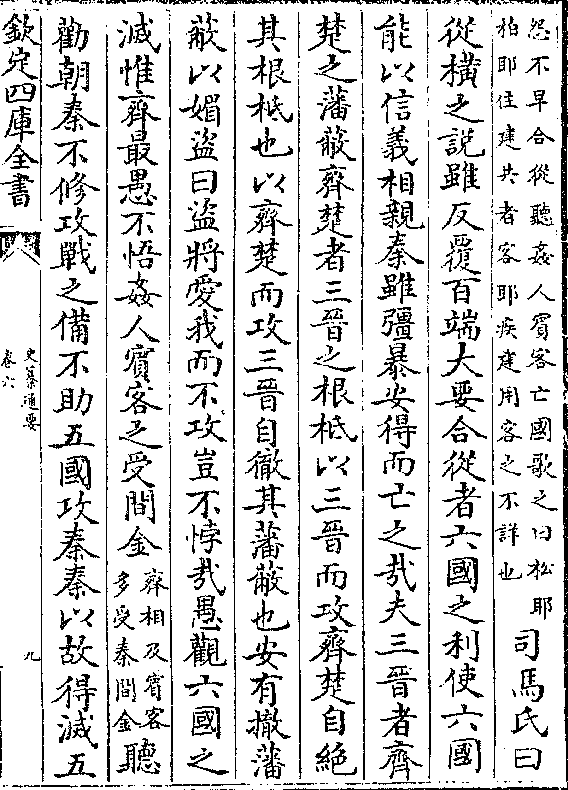 怨不早合從聽姦人賓客亡國歌之曰松耶
柏耶住建共者客耶疾建用客之不詳也
司馬氏曰
從横之說雖反覆百端大要合從者六國之利使六國
能以信義相親秦雖彊暴安得而亡之哉夫三晉者齊
楚之藩蔽齊楚者三晉之根柢以三晉而攻齊楚自絕
其根柢也以齊楚而攻三晉自徹其藩蔽也安有撤藩
蔽以媚盜曰盜將愛我而不攻豈不悖哉愚觀六國之
滅惟齊最愚不悟姦人賓客之受間金
齊相及賓客
多受秦間金
聽
勸朝秦不修攻戰之備不助五國攻秦秦以故得滅五
欽定四庫全書
史纂通要
卷六
九